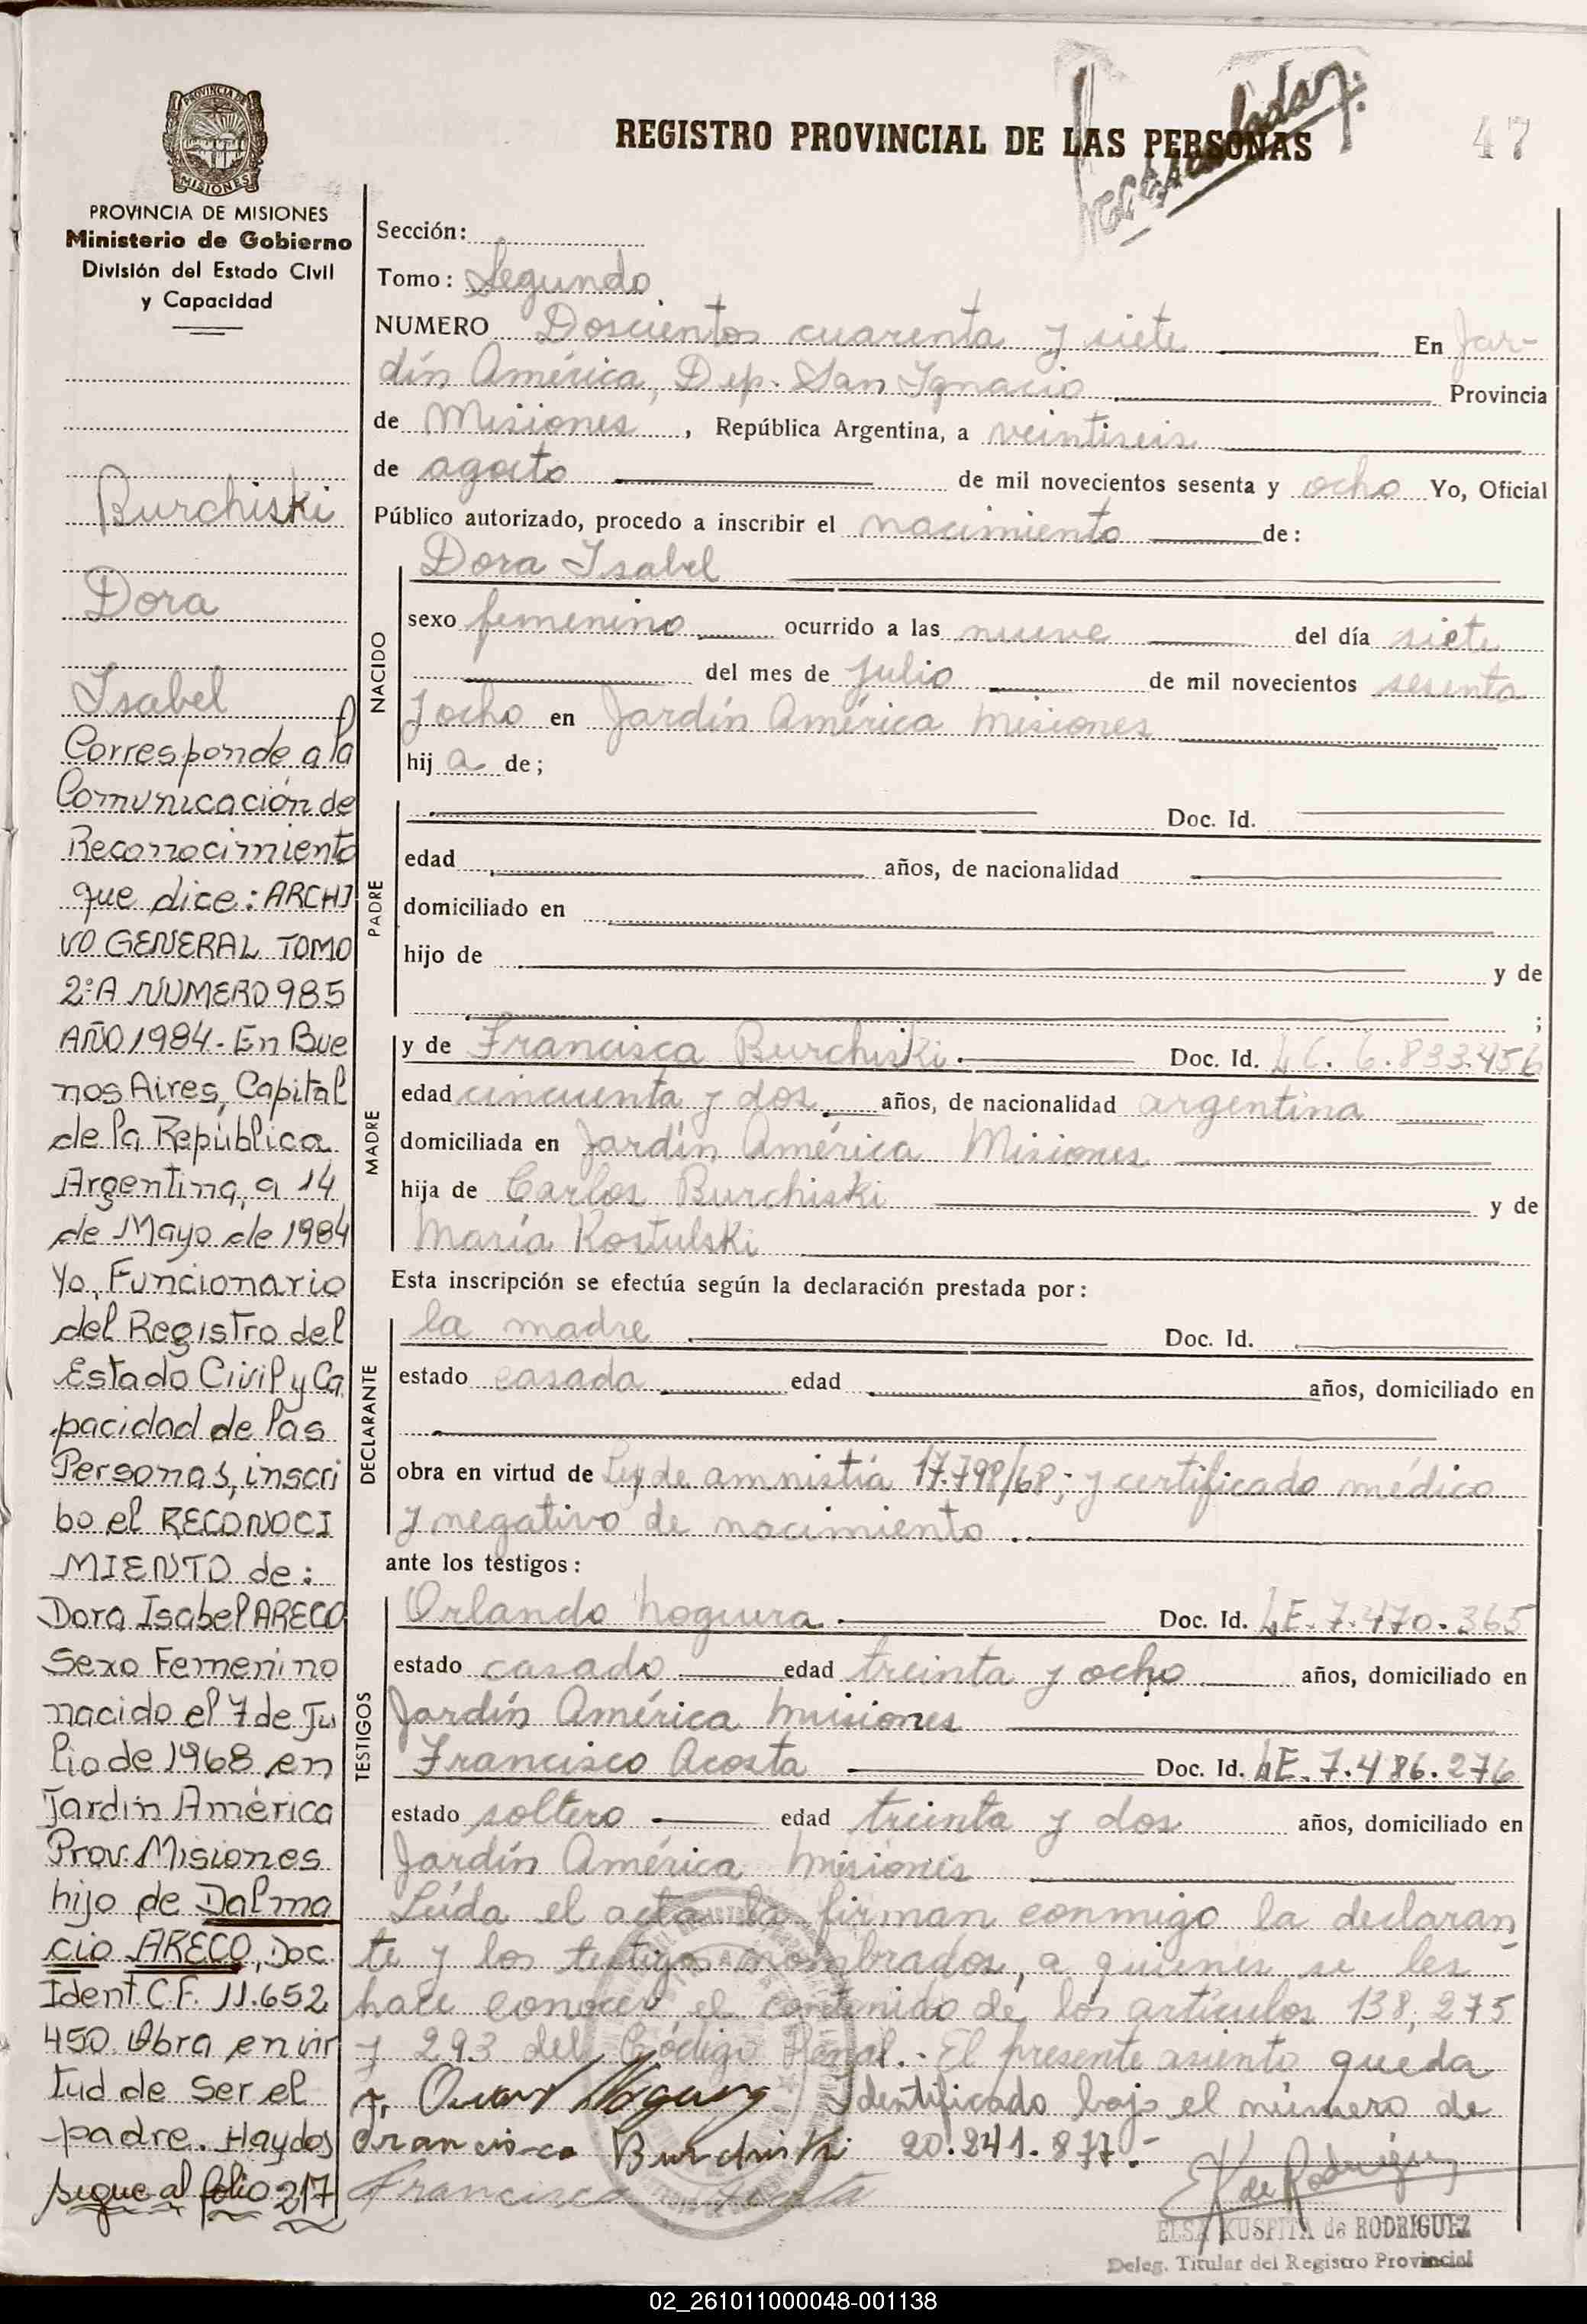 47
REGISTRO PROVINCIAL DE LAS PERSONAS
PROVINCIA DE MISIONES
Ministerio de Gobierno
División del Estado Civil
y Capacidad
Burchiski
Dora
Isabel
Corresponde a la
Comunicación de
Reconocimiento
que dice: ARCHI
VO GENERAL TOMO
2º A NUMERO 985
AÑO 1984- En Bue
nos Aires, Capital
de la República
Argentina, a 14
de Mayo de 1984
Yo, Funcionario
del Registro del
Estado Civil y Ca
pacidad de las
Personas, inscri
bo el RECONOCI
MIENTO de:
Dora Isabel ARECO
Sexo Femenino
nacido el 7 de Ju
lio de 1968 en
Jardín América
Prov. Misiones
hijo de Dalma
cio ARECO, Doc.
Ident. C.F. 11.652
450. Obra en vir
tud de ser el
padre. Hay dos
sigue al folio 217
Sección:
Tomo: Segundo
NUMERO Doscientos cuarenta y siete En Jar-
dín América, Dep. San Ignacio Provincia
de Misiones, República Argentina, a veintiseis
de agosto de mil novecientos sesenta y ocho Yo, Oficial
Público autorizado, procedo a inscribir el nacimiento de:
NACIDO
Dora Isabel
sexo femenino ocurrido a las nueve del día siete
del mes de julio de mil novecientos sesenta
y ocho en Jardín América Misiones
hij a de;
PADRE
Doc. Id.
edad años, de nacionalidad
domiciliado en
hijo de y de
;
MADRE
y de Francisca Burchiski. Doc. Id. LC. 6.833.456
edad cincuenta y dos años, de nacionalidad argentina
domiciliada en Jardín América Misiones
hija de Carlos Burchiski y de
María Kostulski
Esta inscripción se efectúa según la declaración prestada por:
DECLARANTE
la madre Doc. Id.
estado casada edad años, domiciliado en
obra en virtud de Ley de amnistía 17.798/68; y certificado médico
y negativo de nacimiento.
ante los testigos:
TESTIGOS
Orlando Noguera Doc. Id. LE. 7.470.365
estado casado edad treinta y ocho años, domiciliado en
Jardín América Misiones
Francisco Acosta Doc. Id. LE. 7.486.276
estado soltero edad treinta y dos años, domiciliado en
Jardín América Misiones
Leída el acta la firman conmigo la declaran
te y los testigos nombrados, a quienes se les
hace conocer el contenido de los artículos 138, 275
y 293 del Código Penal.- El presente asiento queda
Identificado bajo el número de
Francisca Burchiski 20.241.877.-
Francisco Acosta
E K de Rodriguez
ELSA KUSPITA de RODRIGUEZ
Deleg. Titular del Registro Provincial
02_261011000048-001138